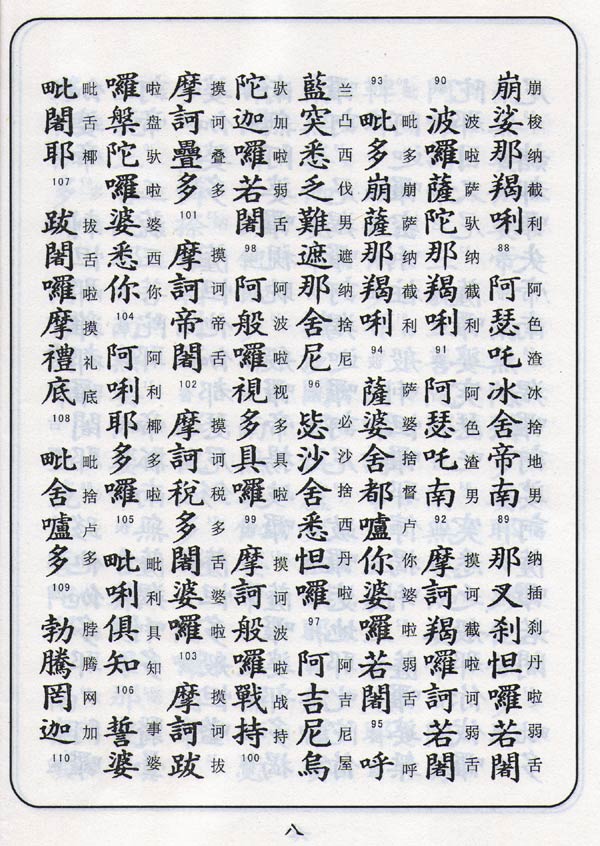 崩娑那羯唎 88 阿瑟吒冰舍帝南 89 那叉剎怛囉若闍
崩梭纳截利 阿色渣冰捨地男 纳插刹丹啦弱舌
90 波囉薩陀那羯唎 91 阿瑟吒南 92 摩訶羯囉訶若闍
波啦萨驮纳截利 阿色渣男 摸诃截啦诃弱舌
93 毗多崩薩那羯唎 94 薩婆舍都嚧你婆囉若闍 95 呼
毗多崩萨纳截利 萨婆捨督卢你婆啦弱舌 呼
藍突悉乏難遮那舍尼 96 毖沙舍悉怛囉 97 阿吉尼烏
兰凸西伐男遮纳捨尼 必沙捨西丹啦 阿吉尼屋
陀迦囉若闍 98 阿般囉視多具囉 99 摩訶般囉戰持 100
驮加啦弱舌 阿波啦视多具啦 摸诃波啦战持
摩訶疊多 101 摩訶帝闍 102 摩訶稅多闍婆囉 103 摩訶跋
摸诃叠多 摸诃帝舌 摸诃税多舌婆啦 摸诃拔
囉槃陀囉婆悉你 104 阿唎耶多囉 105 毗唎俱知 106 誓婆
啦盘驮啦婆西你 阿利椰多啦 毗利具知 事婆
毗闍耶 107 跋闍囉摩禮底 108 毗舍嚧多 109 勃騰罔迦 110
毗舌椰 拔舌啦摸礼底 毗捨卢多 脖腾网加
八